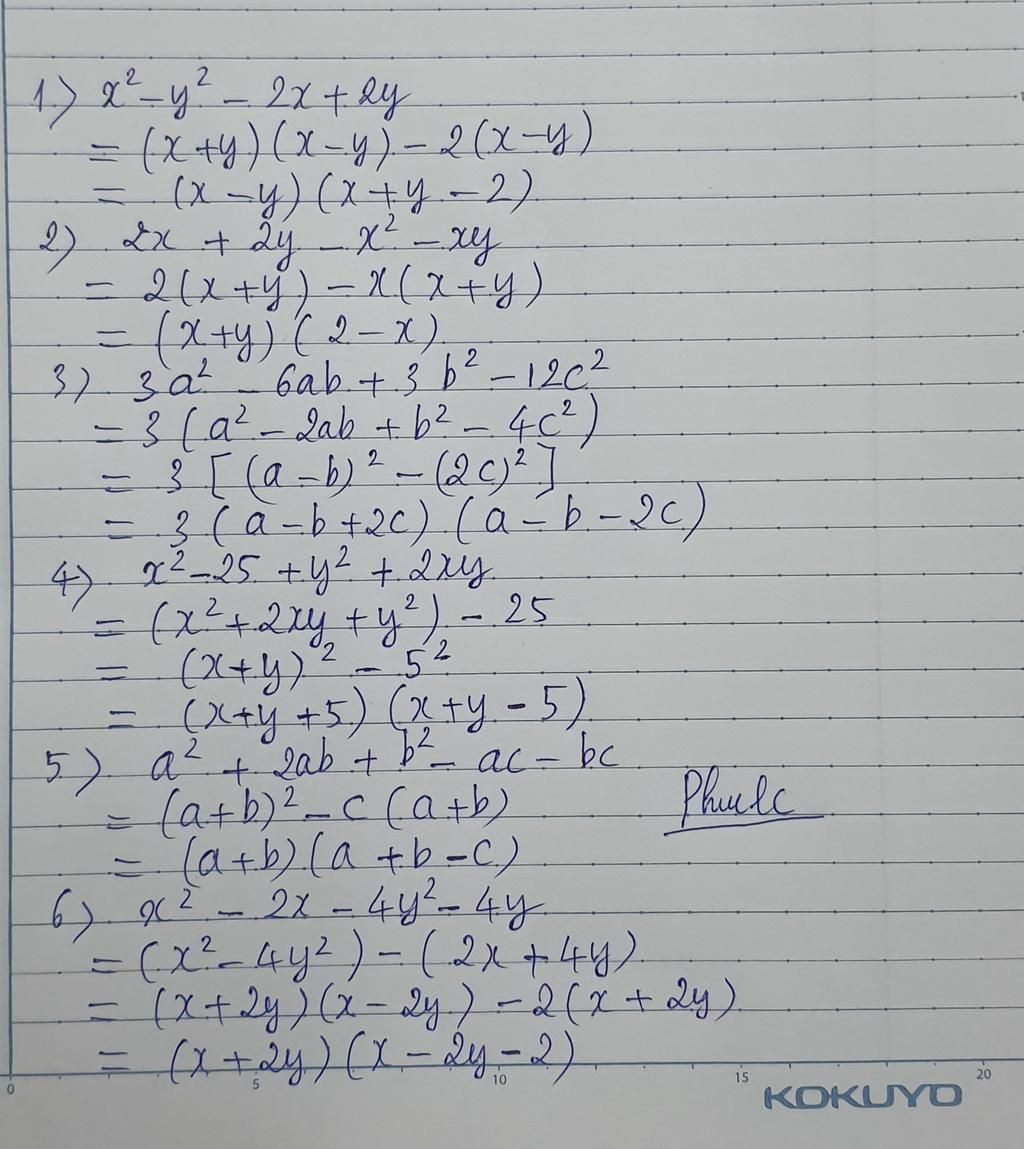 1.) x² - y² - 2x + 2y
= (x + y) (x - y) - 2 (x - y)
= (x - y) (x + y - 2)
2) 2x + 2y - x² - xy
= 2 (x + y) - x (x + y)
= (x + y) (2 - x)
3) 3a² - 6ab + 3b² - 12c²
= 3 (a² - 2ab + b² - 4c²)
= 3 [(a - b)² - (2c)²]
= 3 (a - b + 2c) (a - b - 2c)
4) x² - 25 + y² + 2xy
= (x² + 2xy + y²) - 25
= (x + y)² - 5²
= (x + y + 5) (x + y - 5)
5) a² + 2ab + b² - ac - bc
= (a + b)² - c (a + b)
= (a + b) (a + b - c)
6) x² - 2x - 4y² - 4y
= (x² - 4y²) - (2x + 4y)
= (x + 2y) (x - 2y) - 2 (x + 2y)
= (x + 2y) (x - 2y - 2)
0 5 10 15 20
KOKUYO